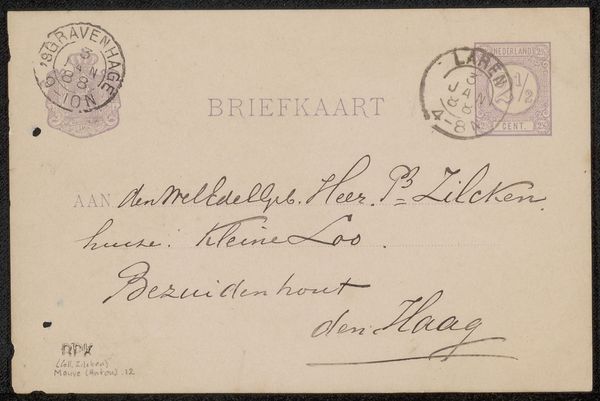 'SGRAVENHAGE
3
JAN
88
9-10N
LAREN
3
JAN
88
4-8N
NEDERLAND
2½
CENT.
BRIEFKAART
AAN den WelEdelGeb. Heer. Ph= Zilcken.
huize: Kleine Loo.
Bezuidenhout
den Haag
RPK
(Coll. Zilcken)
Mauve (Anton). 12